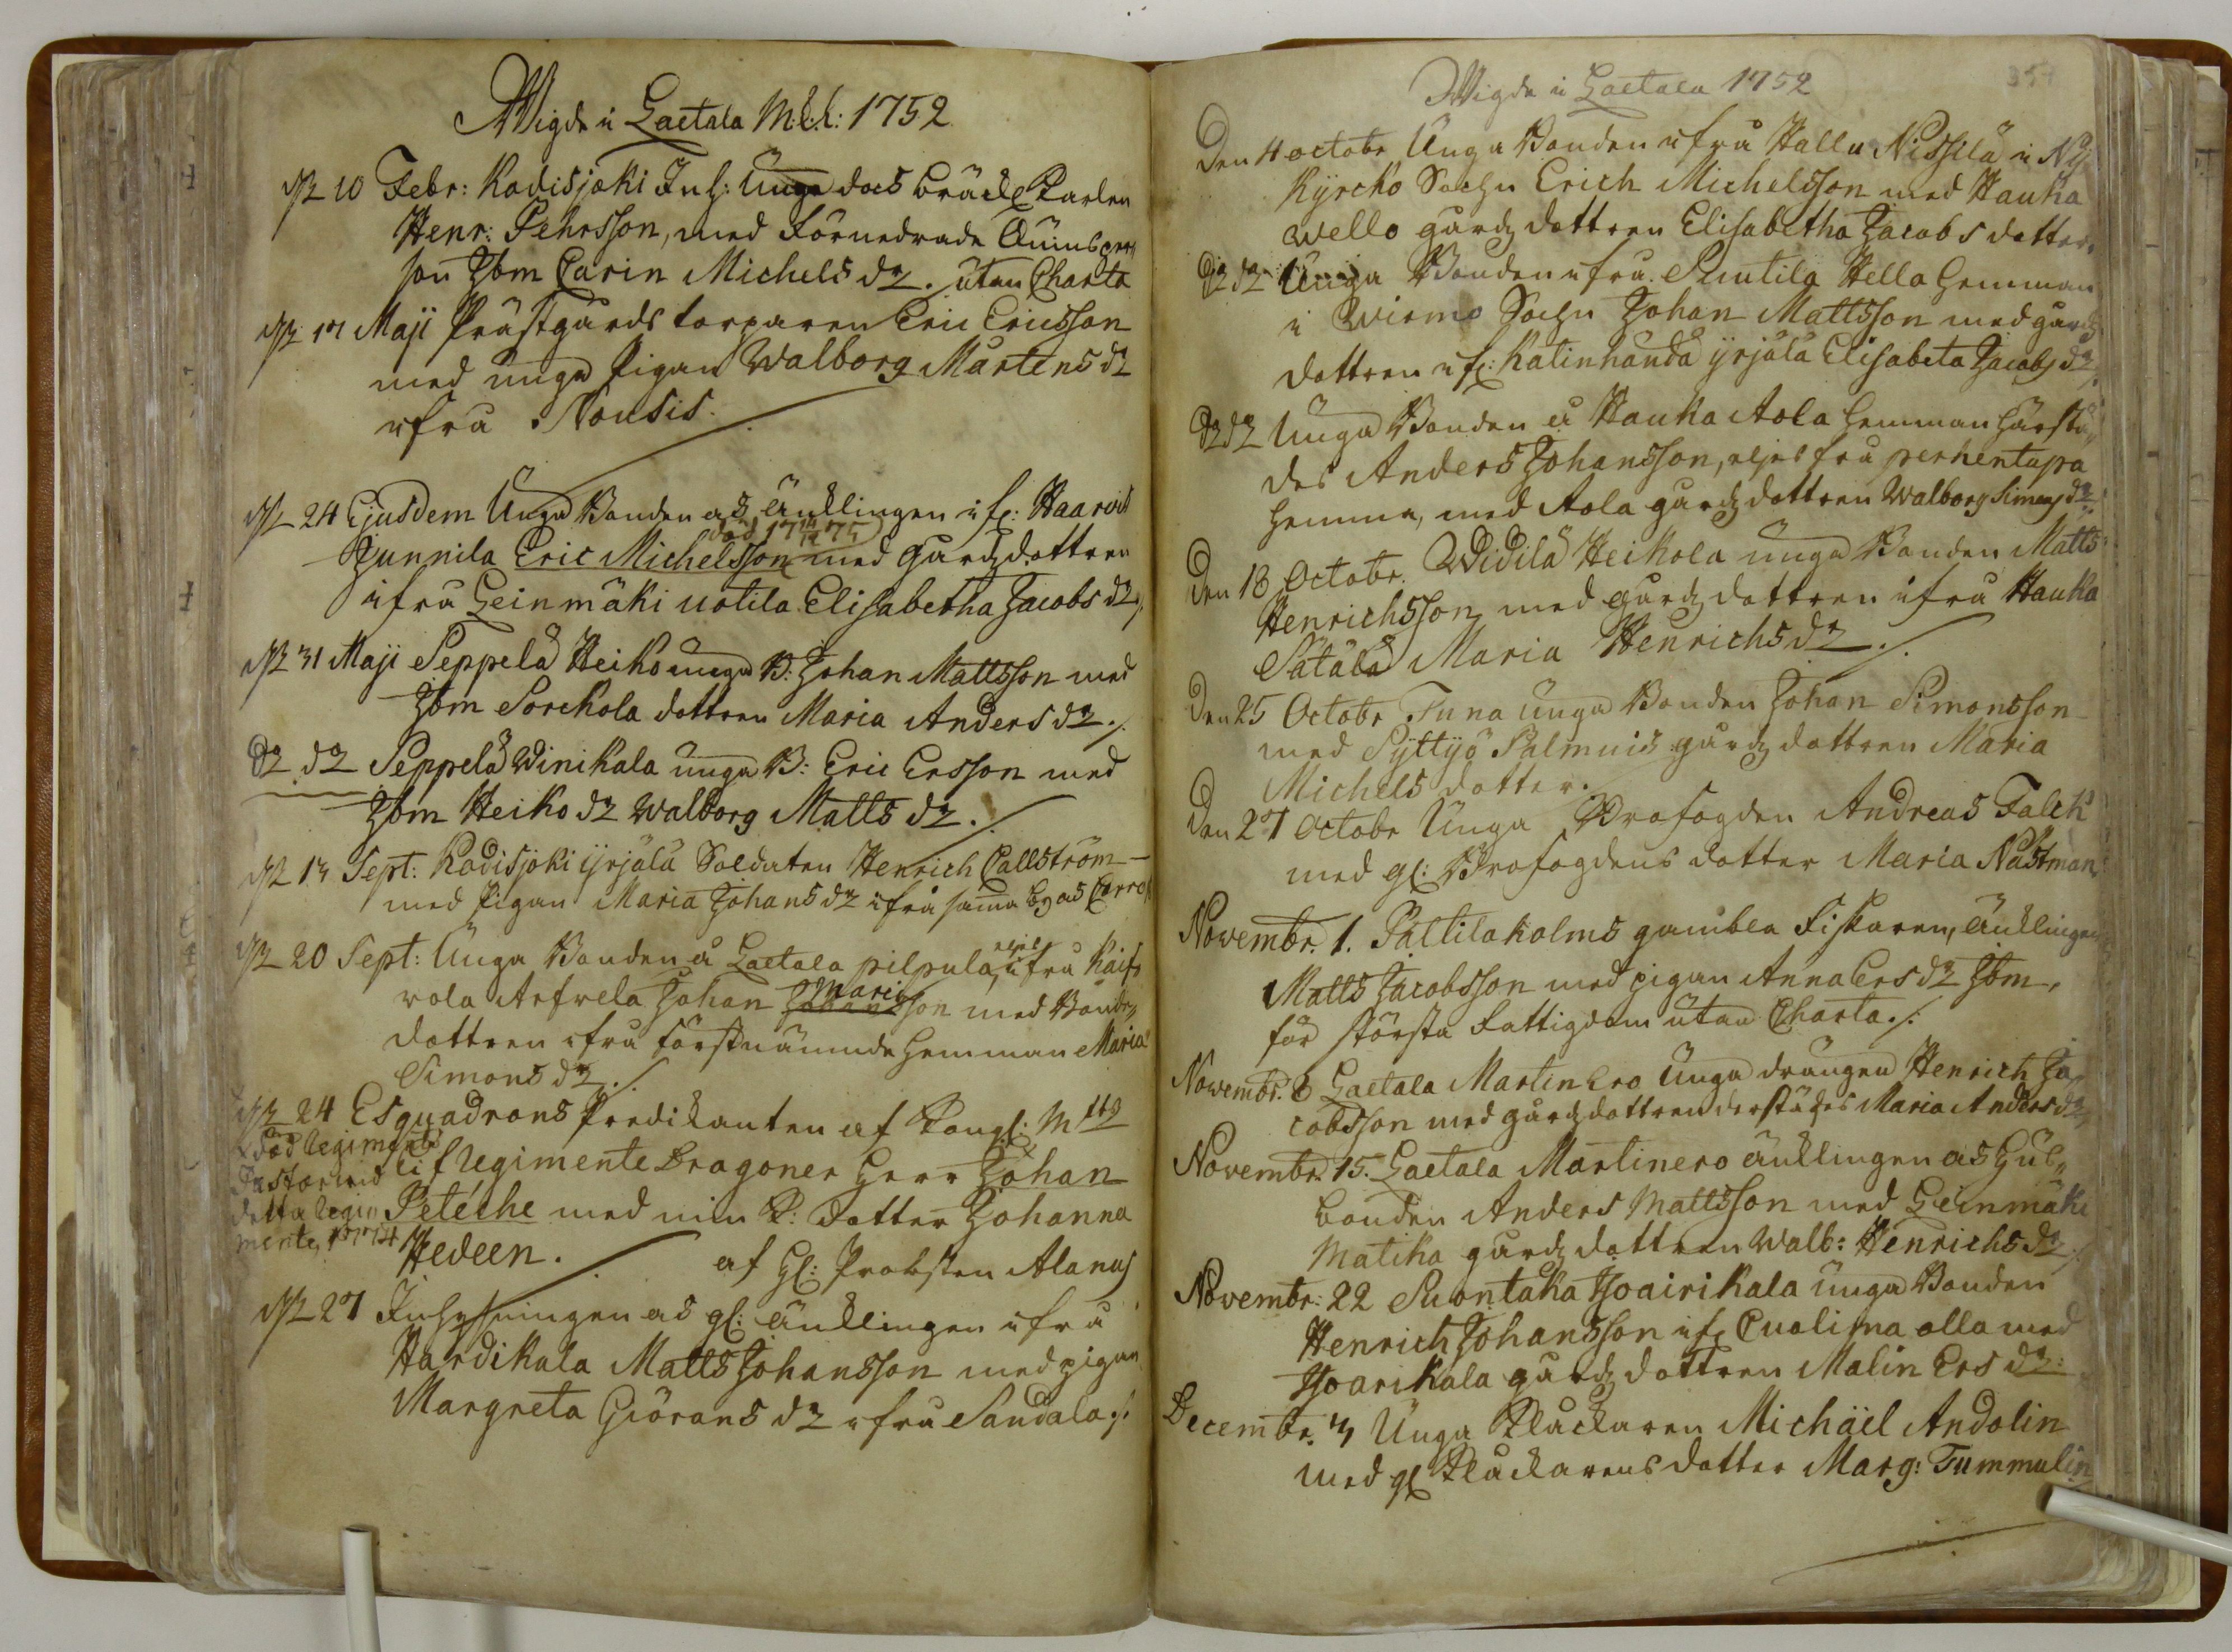 Wigde i Laetala M:K:l: 1752
10 Febr: Kodisjoki Inh: Unga dock bräckl Karlen
Henr: Pehrsson, med förnedrade Quinsper
son Ibm Carin Michels dr. utan Charta
17 Maji Prästgårds torparen Eric Ericsson
med unga pigan Walborg Mårtens dr
ifrå Nousis.
24 Ejusdem Unga Bonden as Änklingen if: Haarois
död 1775
Junnila Eric Michelsson med Gårdz dottren
ifrå Leinmäki uotila Elisabetha Jacobs dr
31 Maji Seppelä Heiko unga B: Johan Mattsson med
Ibm Sorckola dottren Maria Anders dr.
Seppelä Winikala unga B: Eric Ersson med
Ibm Heiko dr Walborg Matts dr.
13 Sept: Kodisjoki ijrjälä Soldaten Henrich Callström
med pigan Maria Johans dr ifrå sama by as
20 Sept: Unga Bonden å Laetala pilpula, eljes ifrå Kaif
rola Arfwela Johan Johansson Maris med Bond
dottren ifrå förstnämnde hemman Maria
Simons dr.
24 Esquadrons Predikanten af Kongl: Mtts
x död legiments
Pastor vid Lif Regimente Dragoner Herr Johan
detta legi Petéche med min K: dotter Johanna
mente, 1774 Hedeen. af gl: Probsten Alanus
27 Inhysningen as gl: änklingen ifrå
Hardikala Matts Johansson med pigan
Margreta Giörans dr ifrå Sandala.
Wigde i Laetala 1752
Den 4 octobr Unga Bonden ifrå Hallu Nissilä i Ny
Kyrcko Sochn Erich Michelsson med Hauka
wello gårdz dottren Elisabetha Jacobs dotter.
Unga Bonden ifrå Suutila Hella hemman
i Wirmo Sochn Johan Mattsson med gårdz
dottren if: Katinhanda ijrjälä Elisabeta Jacobs dr
Unga Bonden å Hauka Aola hemman härstä
des Anders Johansson, eljes frå perhentupa
hemma, med Aola gårdz dottren Walborg Simons dr.
Den 18 Octobr. Widilä Heikola unga Bonden Matts
Henrichsson med gårdz dottren ifrå Hauka
Sätälä Maria Henrichs dr.
Den 25 Octobr Tuna Unga Bonden Johan Simonsson
med Syttyö Salmuis gårdz dottren Maria
Michels dotter.
Den 27 Octobr Unga Profogden Andreas Falck
med gl: Profogdens dotter Maria Nästman
Novembr. 1. Paltilakolms gamblea Fiskaren, Änklingen
Matts Jacobsson med pigan Anna Ers dr Ibm,
för största Fattigdom utan Charta.
Novembr. 8 Laetala Martinero Unga drängen Henrich Ja
cobsson med gårdz dottren derstädes Maria Anders dr
Novembr. 15. Laetala Martinero änklingen as Hus
bonden Anders Mattsson med Leinmäki
Matika gårdz dottren Walb: Henrichs dr
Novembr: 22 Suontaka Isoairikala unga Bonden
Henrich Johansson if Cualima alla med
Isoarikala gårdz dottren Malin Ers dr:
Decembr. 3 Unga Kluckaren Michäel Andolin
med gl Kluckarens dotter Marg: Tummulin